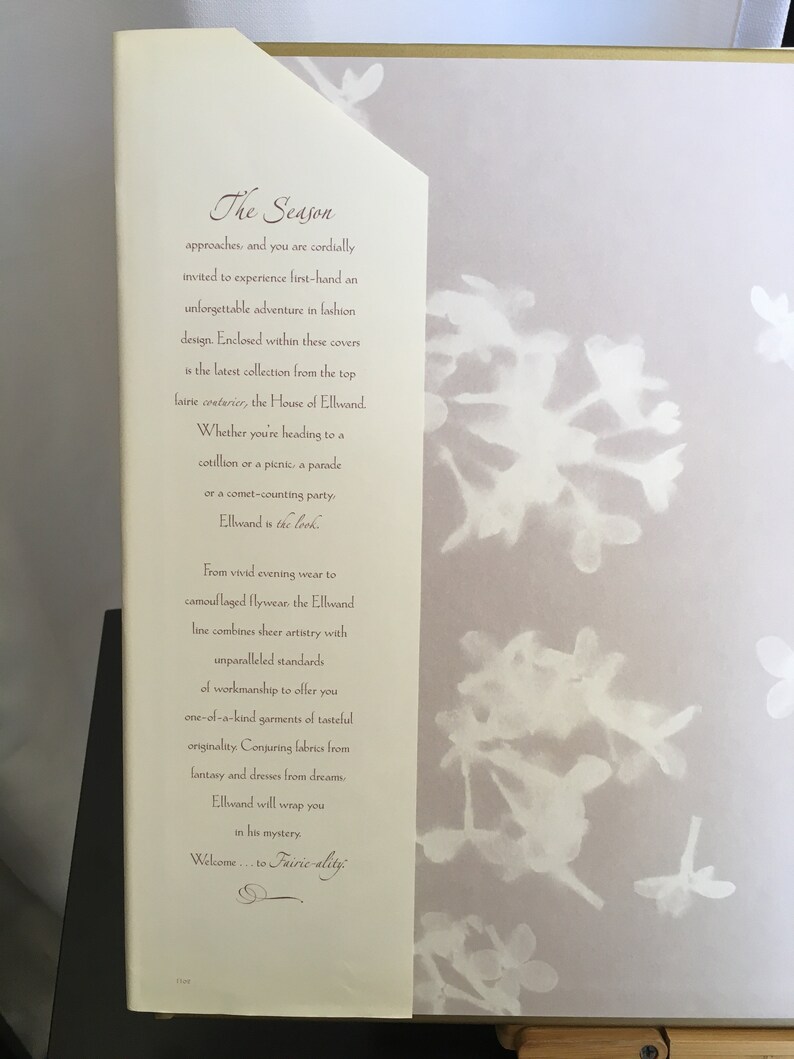 The Season
approaches, and you are cordially
invited to experience first-hand an
unforgettable adventure in fashion
design. Enclosed within these covers
is the latest collection from the top
fairie couturier, the House of Ellwand.
Whether you're heading to a
cotillion or a picnic, a parade
or a comet-counting party,
Ellwand is the look.
From vivid evening wear to
camouflaged flywear, the Ellwand
line combines sheer artistry with
unparalleled standards
of workmanship to offer you
one-of-a-kind garments of tasteful
originality. Conjuring fabrics from
fantasy and dresses from dreams,
Ellwand will wrap you
in his mystery.
Welcome . . . to Fairie-ality.
1102